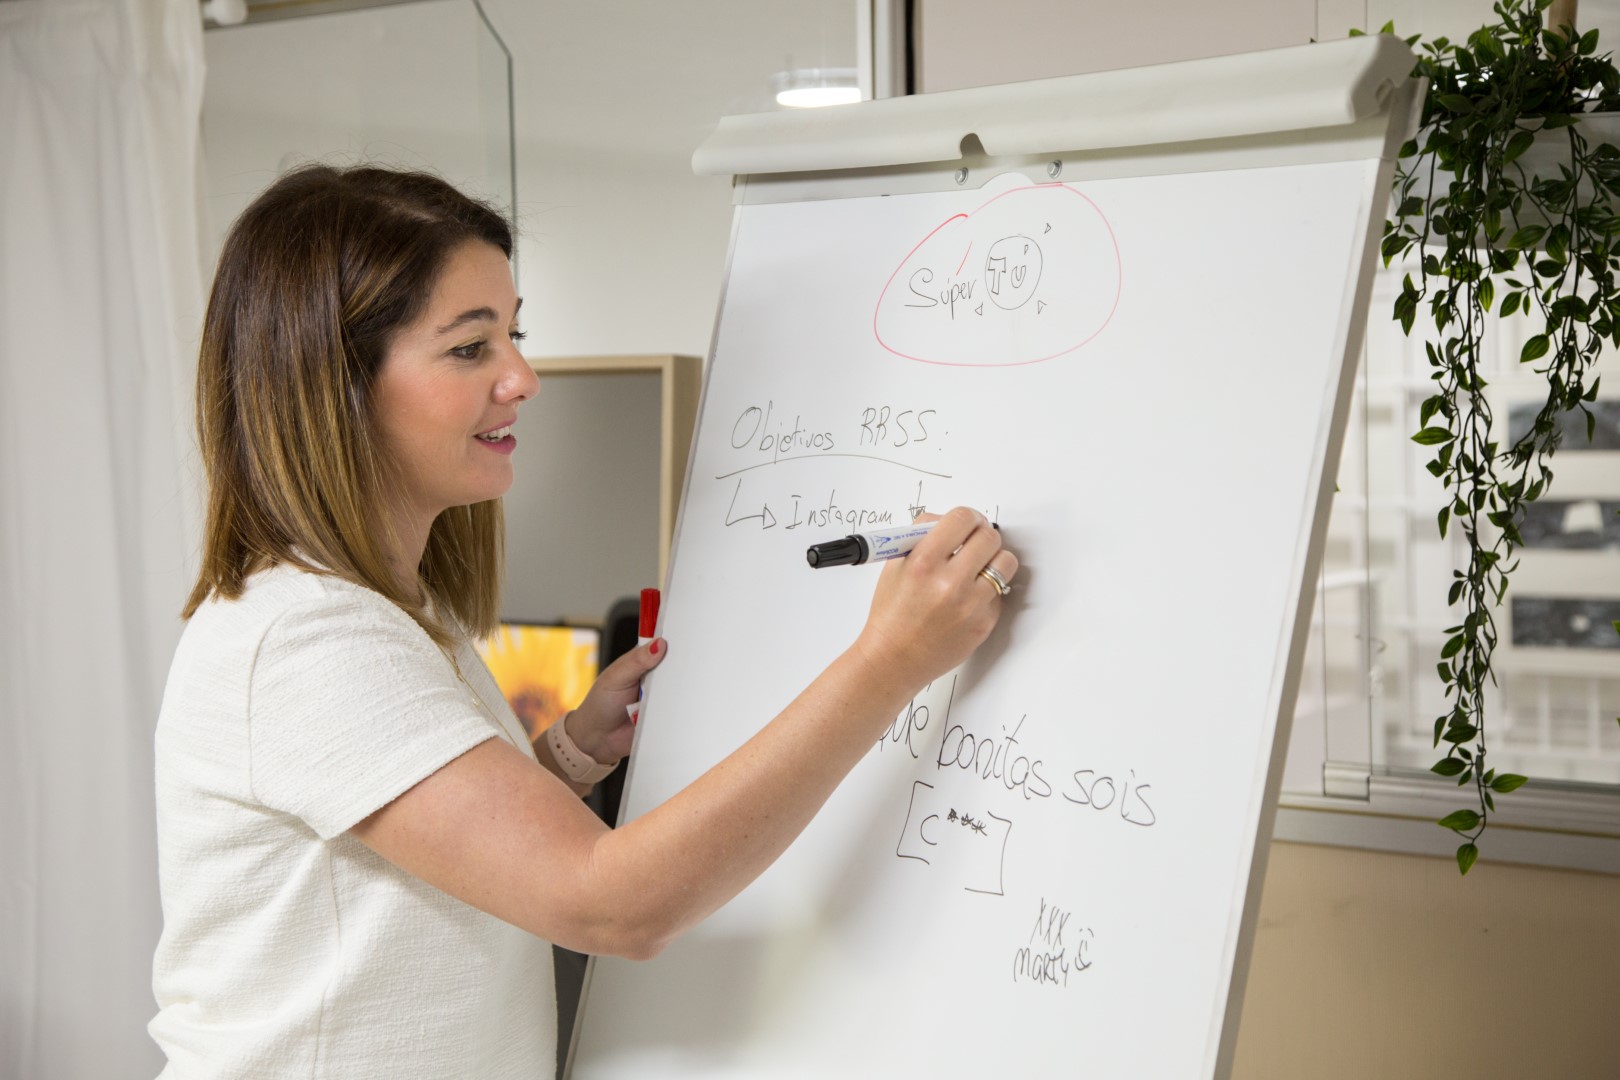 Súper TÚ
Objetivos RRSS:
Instagram
bonitas sois
[C***]
XXX
Marty